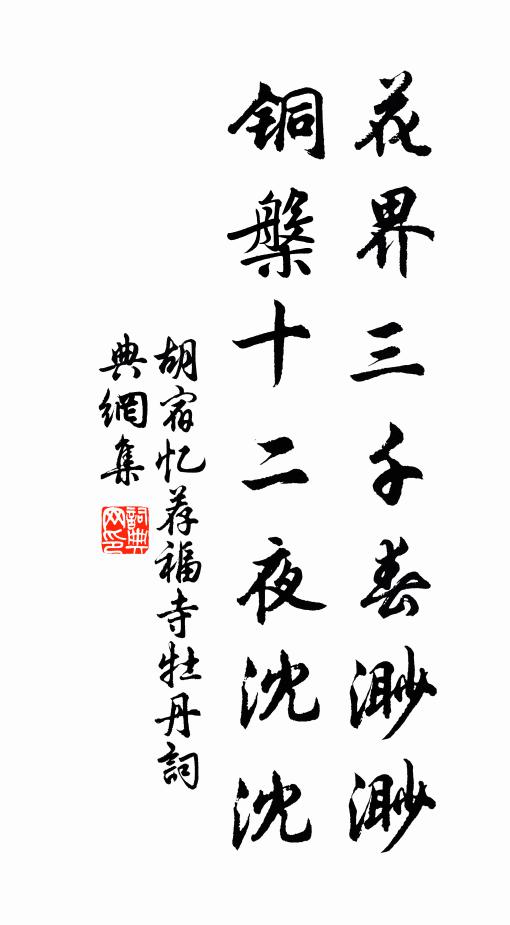 花界三千春渺渺
铜槃十二夜沈沈
胡宿忆荐福寺牡丹詞
典網集
詞典
网印